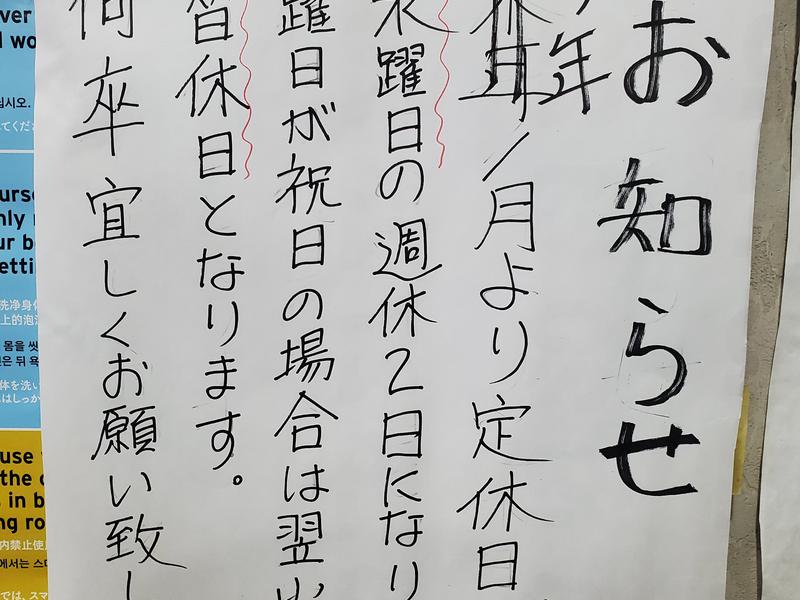 お知らせ
年
1月より定休日
躍日の週休2日になり
躍日が祝日の場合は翌
替休日となります。
何卒宜しくお願い致し
ver
십시오.
てくだ
urse
nly
ur b
etti
洗浄身体
上的泡
몸을 씻
은 뒤 욕
体を洗い
はしっか
use
the
in b
ng ro
内禁止使
では、スマ